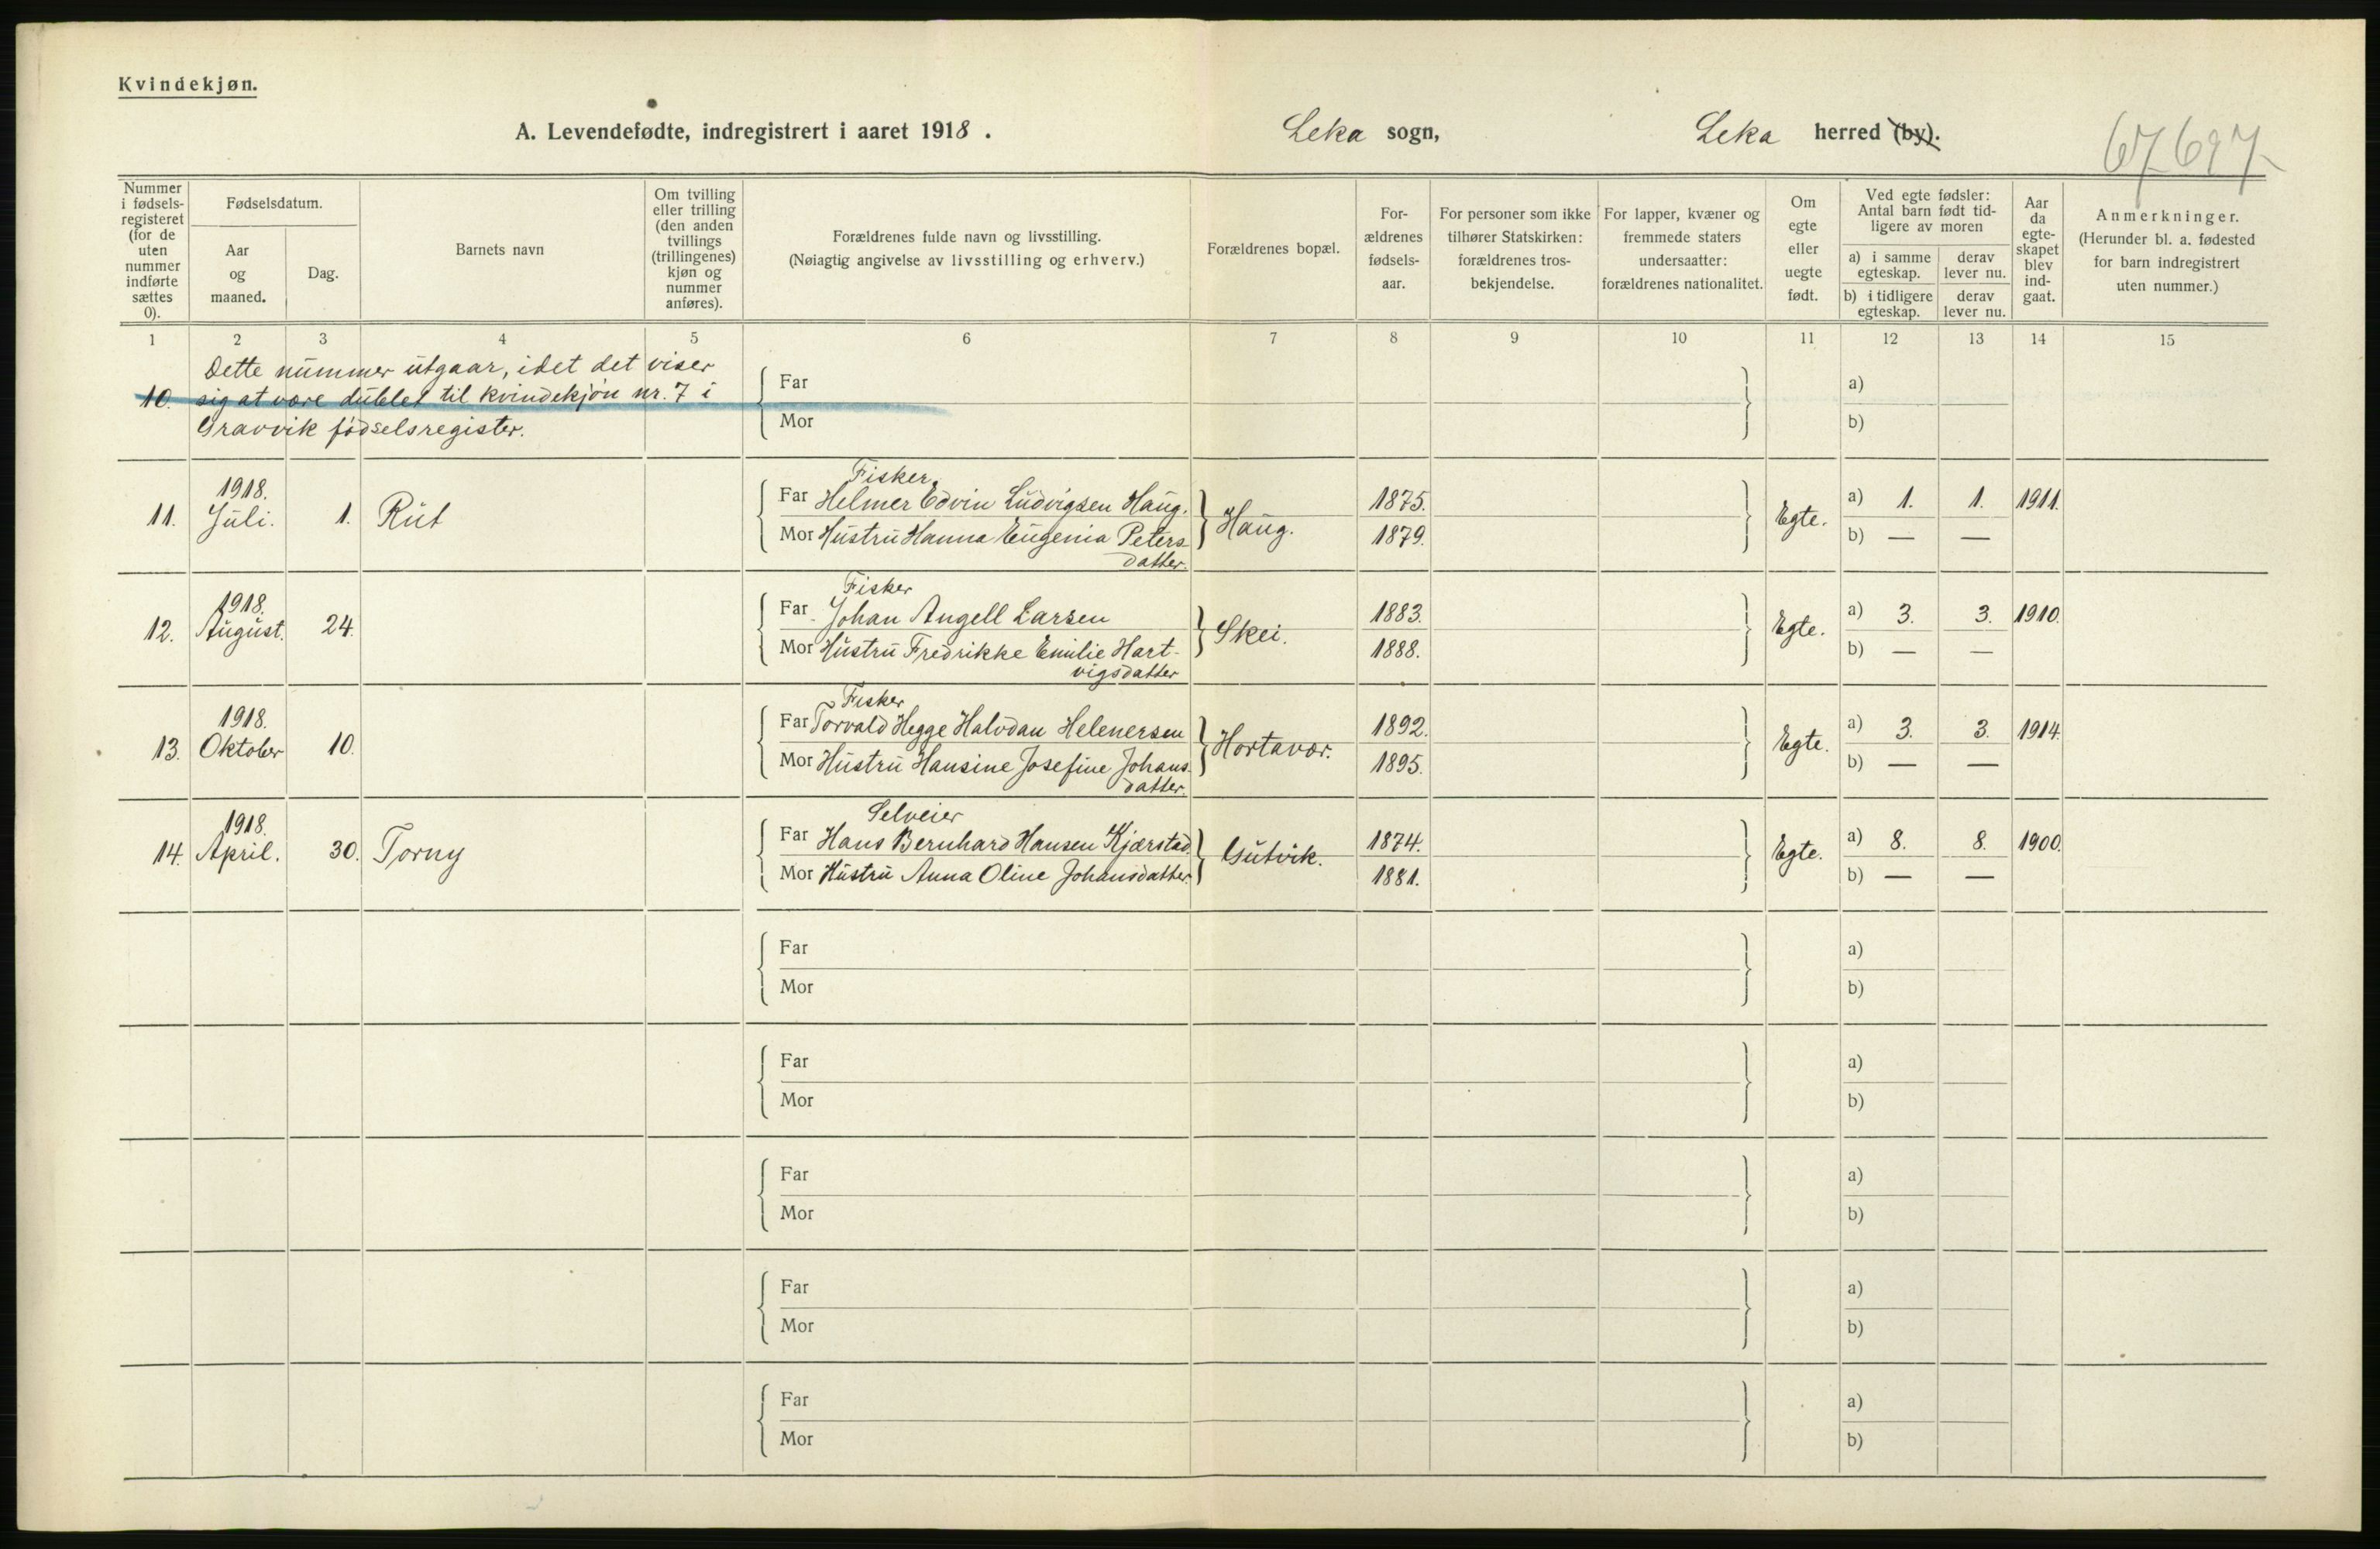 Kvindekjøn.
A. Levendefødte, indregistrert i aaret 1918.
Leka sogn,
Leka herred (by).
67697
Nummer i fødselsregisteret (for de uten nummer indførte sættes 0).
Fødselsdatum.
Aar og maaned.
Dag.
Barnets navn
Om tvilling eller trilling (den anden tvillings (trillingenes) kjøn og nummer anføres).
Forældrenes fulde navn og livsstilling.
(Nøiagtig angivelse av livsstilling og erhverv.)
Forældrenes bopæl.
For-ældrenes fødsels-aar.
For personer som ikke tilhører Statskirken: forældrenes tros-bekjendelse.
For lapper, kvæner og fremmede staters undersaatter: forældrenes nationalitet.
Om egte eller uegte født.
Ved egte fødsler: Antal barn født tid-ligere av moren
a) i samme egteskap.
derav lever nu.
b) i tidligere egteskap.
derav lever nu.
Aar da egte-skapet blev ind-gaat.
Anmerkninger.
(Herunder bl. a. fødested for barn indregistrert uten nummer.)
1 2 3 4 5 6 7 8 9 10 11 12 13 14 15
Dette nummer utgaar, idet det viser
10. sig at være dublet til kvindekjøn nr. 7 i
Gravvik fødselsregister.
Far a)
Mor b)
1918.
Fisker.
11. Juli. 1. Rut Far Helmer Edvin Ludvigsen Haug. Haug. 1875. Egte. a) 1. 1. 1911.
Mor Hustru Hanna Eugenia Peters- 1879. b) — —
datter.
1918.
Fisker
12. August. 24. Far Johan Angell Larsen Skei. 1883. Egte. a) 3. 3. 1910.
Mor Hustru Fredrikke Emilie Hart- 1888. b) — —
vigsdatter
1918.
Fisker
13. Oktober 10. Far Torvald Hegge Halvdan Helenersen Hortavær. 1892. Egte. a) 3. 3. 1914.
Mor Hustru Hansine Josefine Johans- 1895. b) — —
datter.
1918.
Selveier
14. April. 30. Torny Far Hans Bernhard Hansen Kjærstad. Gutvik. 1874. Egte. a) 8. 8. 1900.
Mor Hustru Anna Oline Johansdatter. 1881. b) — —
Far a)
Mor b)
Far a)
Mor b)
Far a)
Mor b)
Far a)
Mor b)
Far a)
Mor b)